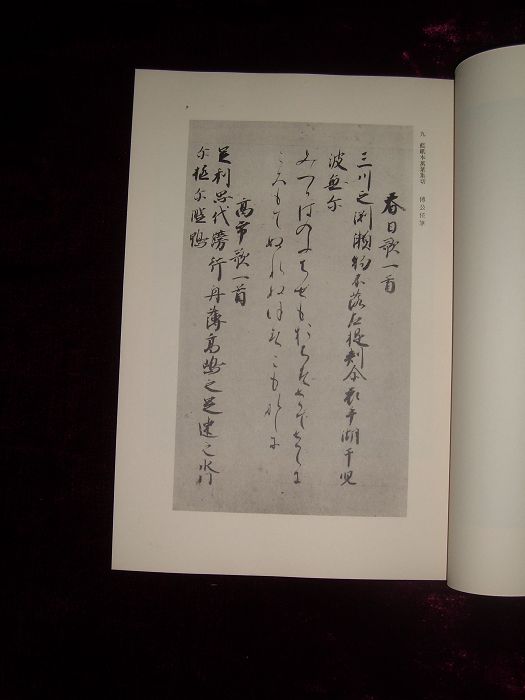 九 藍紙本萬葉集切 傳公任筆
春日歌一首
三川之渕瀬物不落左提刺尓衣手湖干児
波無尓
みつかはのふちせもおちすさてさしに
ころもてぬれぬほすこもなしに
高市歌一首
足利思代榜行舟薄高嶋之足速之水門
尓極尓監鴨